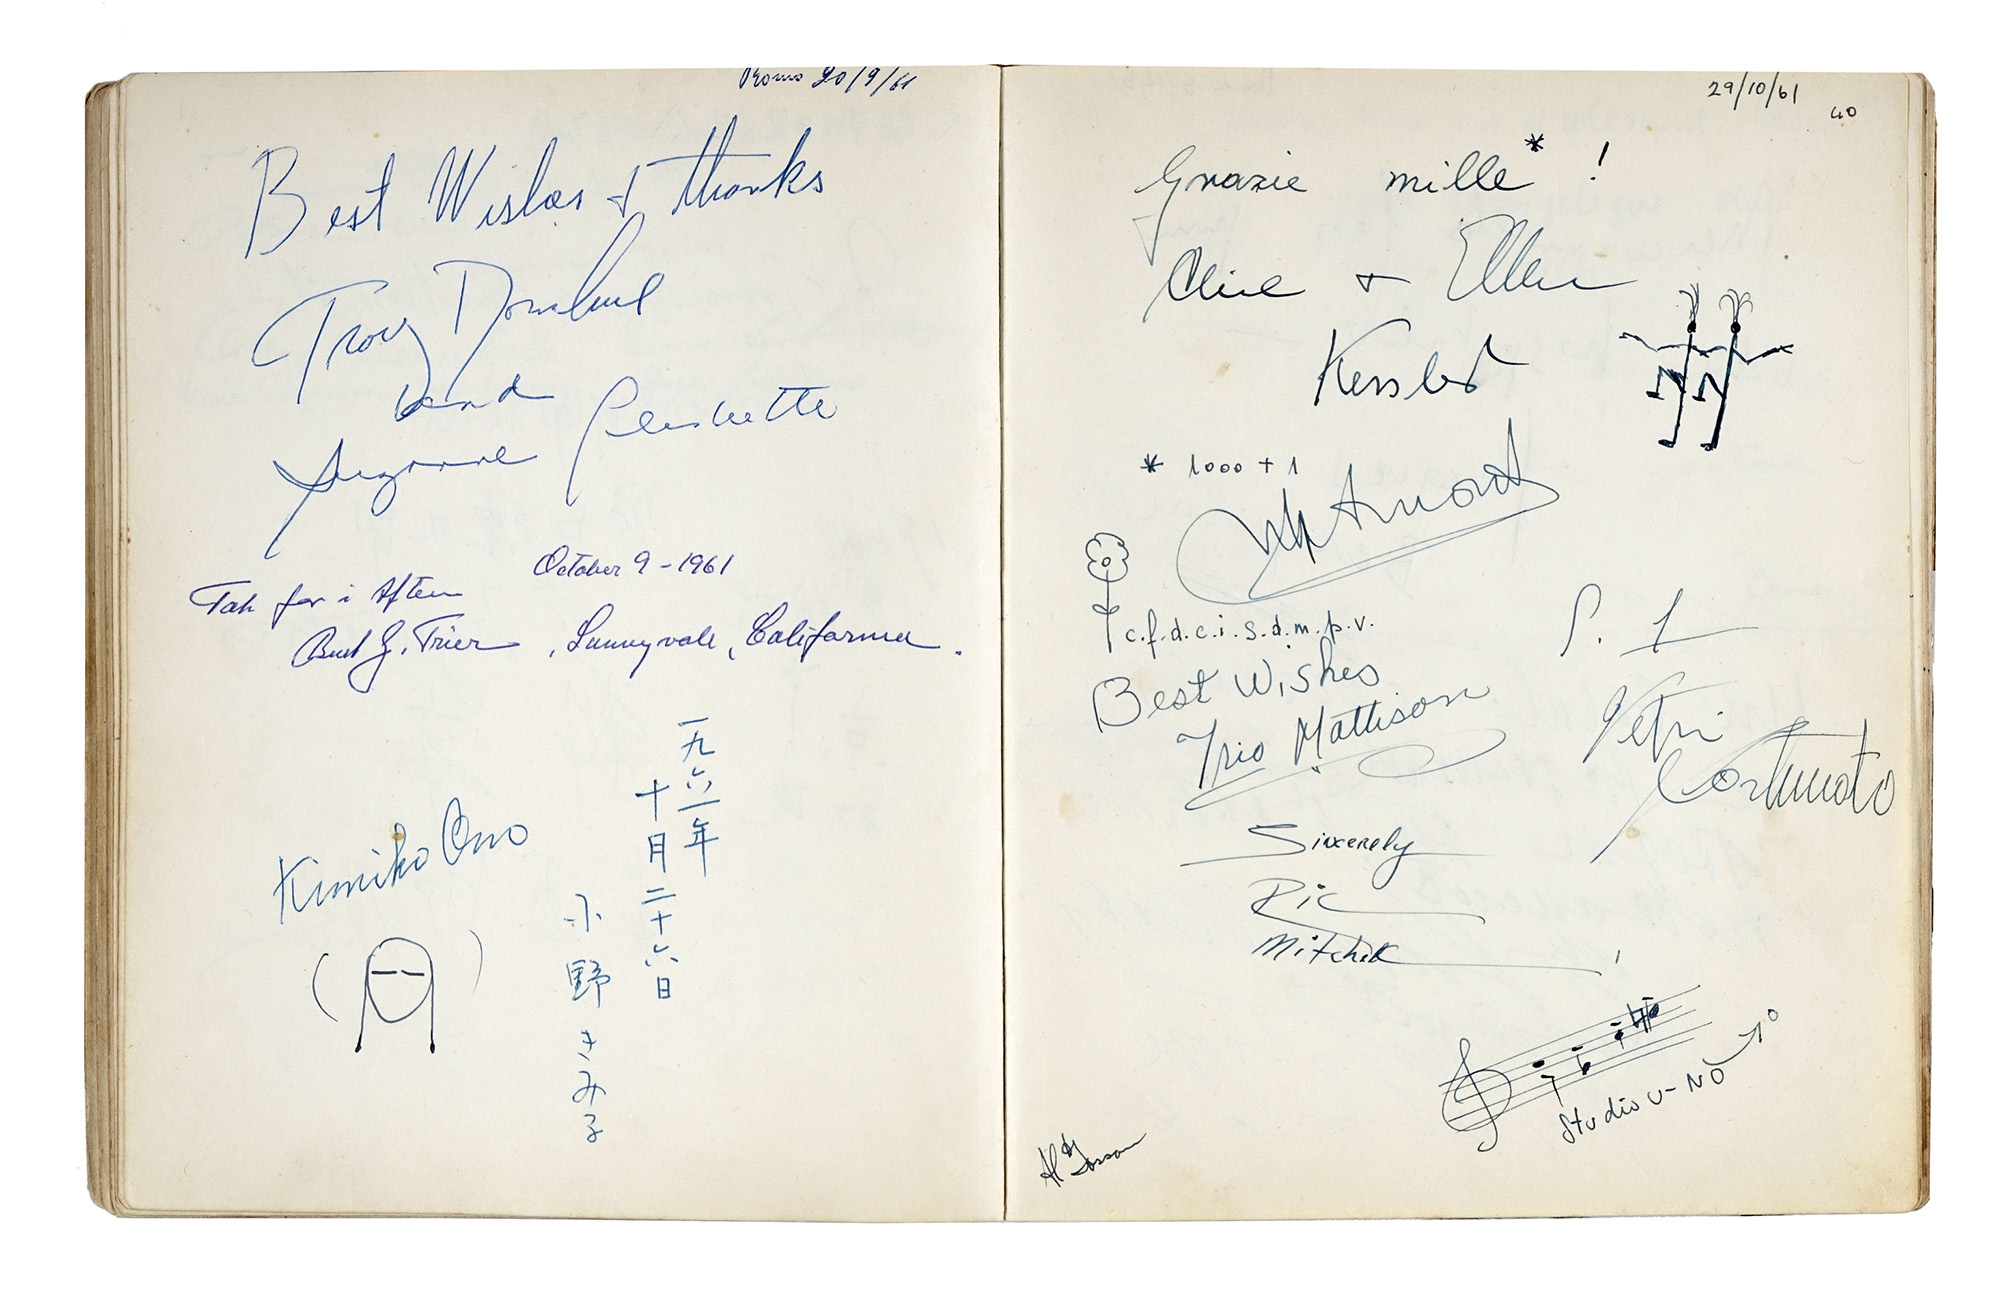 Roma 20/9/61
Best Wishes + thanks
Troy Donahue
and
Suzanne Pleshette
October 9 - 1961
Tak for i Aften
Trier, Sunnyvale, California.
一九六一年
十月二十六日
Kimiko Ono
小野きみ子
29/10/61
40
Grazie mille* !
Alice + Ellen
Kessler
* 1000 + 1
c.f.d.c.i.s.d.m.p.v.
Best Wishes
Trio Mattison
S. 1
Petri
Fortunato
Sincerely
Ric
Mitchell
Studio U-NO